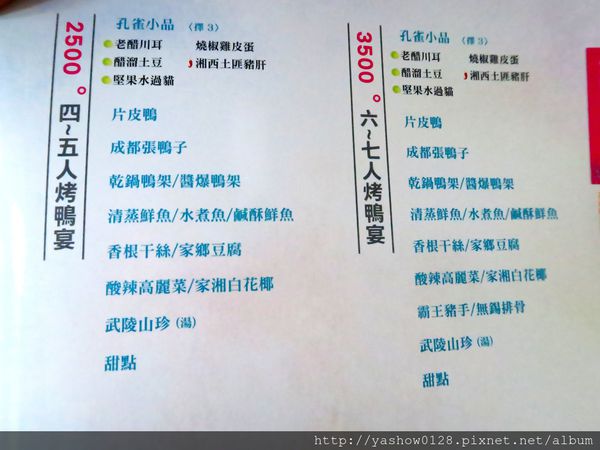 2500。
四~五人烤鴨宴
孔雀小品 (擇3)
老醋川耳 燒椒雞皮蛋
醋溜土豆 湘西土匪豬肝
堅果水過貓
片皮鴨
成都張鴨子
乾鍋鴨架/醬爆鴨架
清蒸鮮魚/水煮魚/鹹酥鮮魚
香根干絲/家鄉豆腐
酸辣高麗菜/家湘白花椰
武陵山珍(湯)
甜點
3500。
六~七人烤鴨宴
孔雀小品 (擇3)
老醋川耳 燒椒雞皮蛋
醋溜土豆 湘西土匪豬肝
堅果水過貓
片皮鴨
成都張鴨子
乾鍋鴨架/醬爆鴨架
清蒸鮮魚/水煮魚/鹹酥鮮魚
香根干絲/家鄉豆腐
酸辣高麗菜/家湘白花椰
霸王豬手/無錫排骨
武陵山珍(湯)
甜點
http://yashow0128.pixnet.net/album